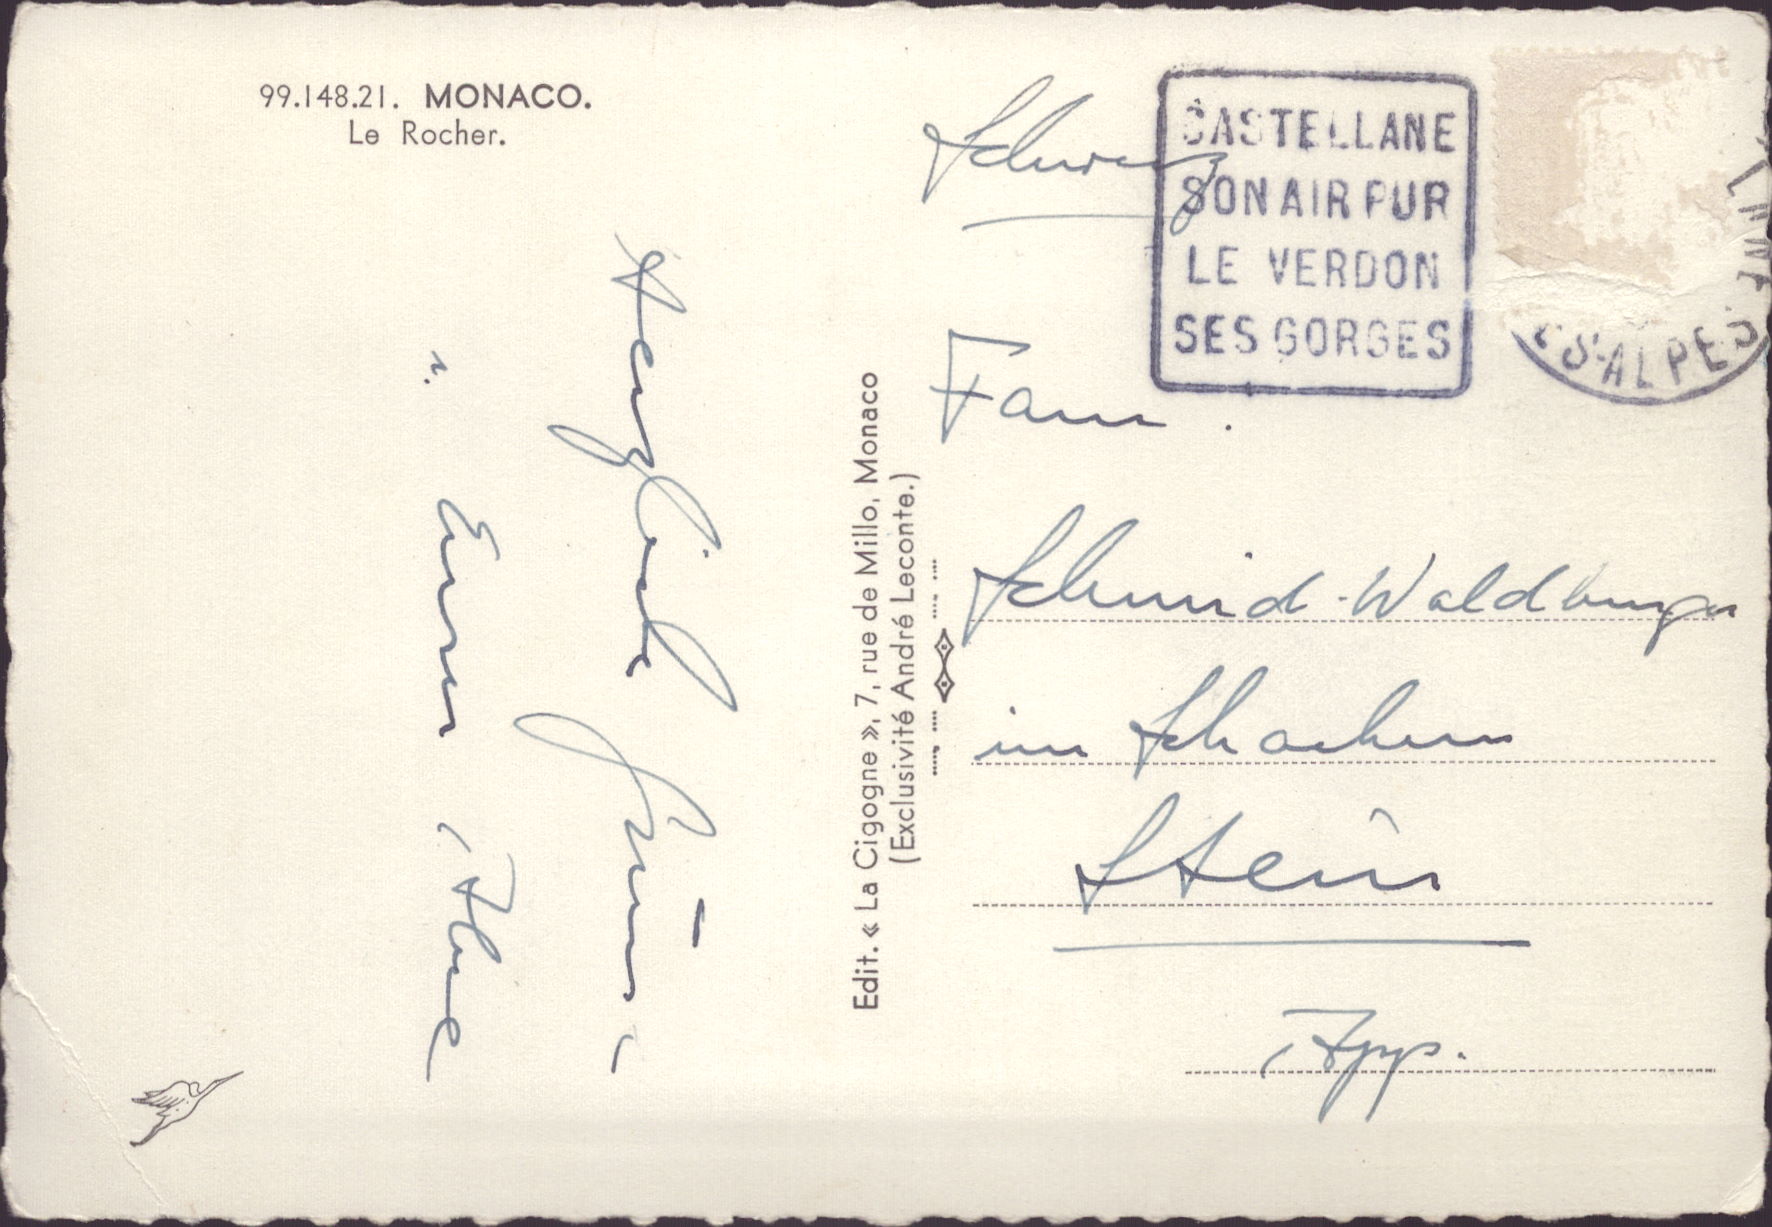 99.148.21. MONACO.
Le Rocher.
Herzliche Grüsse
v.
Schweiz
CASTELLANE
SON AIR PUR
LE VERDON
SES GORGES
S-ALPES
Fam.
Schmid-Waldburger
im Schachen
Stein
App.
Edit. « La Cigogne », 7, rue de Millo, Monaco
(Exclusivité André Leconte.)